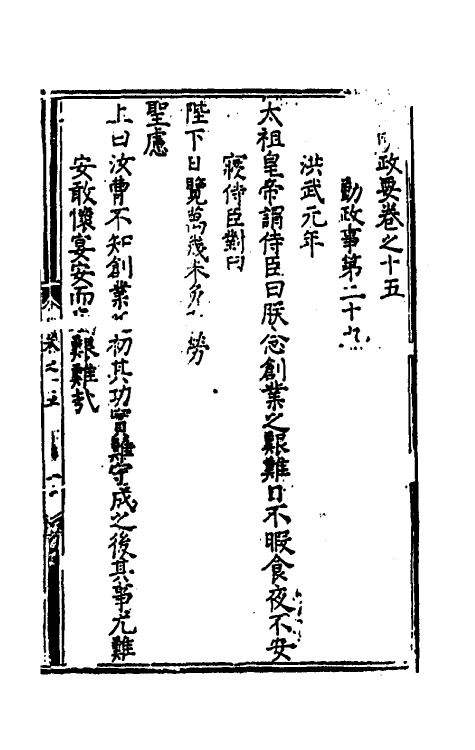 政要卷之十五
勤政事第二十
洪武元年
太祖皇帝謂侍臣曰朕念創業之艱難日不暇食夜不安
寢侍臣對曰
陛下日覽萬幾未免 勞
聖慮
上曰汝曹不知創業之初其功實難守成之後其事尤難
安敢懷宴安而 艱難哉
卷之十五